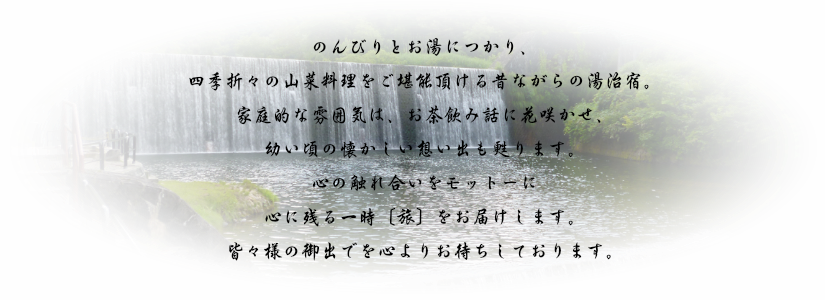 のんびりとお湯につかり、
四季折々の山菜料理をご堪能頂ける昔ながらの湯治宿。
家庭的な雰囲気は、お茶飲み話に花咲かせ、
幼い頃の懐かしい想い出も甦ります。
心の触れ合いをモットーに
心に残る一時〔旅〕をお届けします。
皆々様の御出でを心よりお待ちしております。